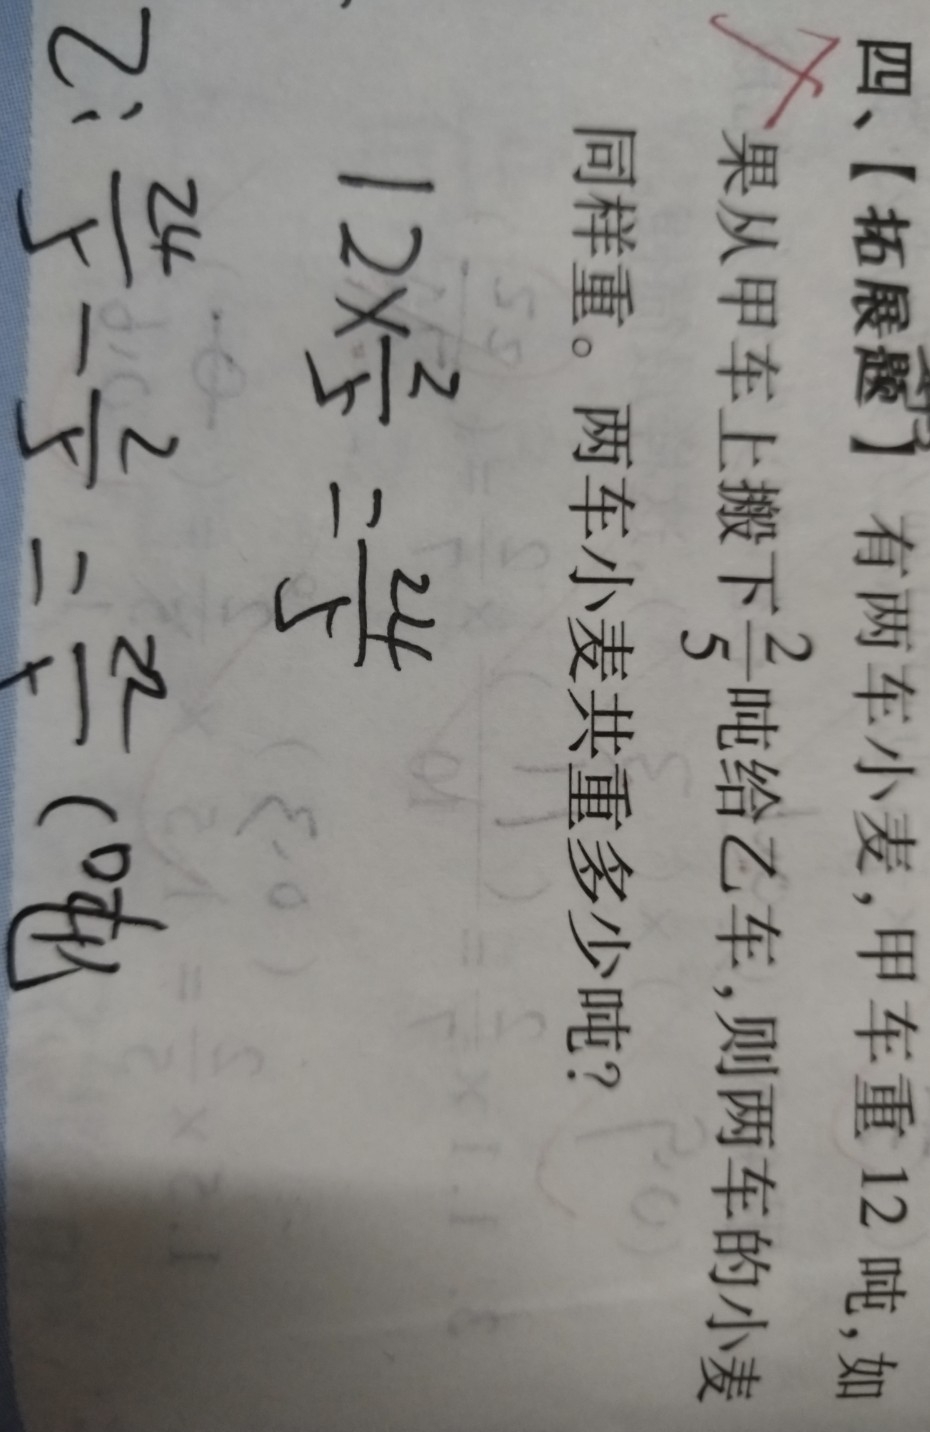 四、【拓展题】有两车小麦，甲车重12吨，如
果从甲车上搬下2/5吨给乙车，则两车的小麦
同样重。两车小麦共重多少吨？
12×2/5=24/5
乙：24/5-2/5=22/5（吨）